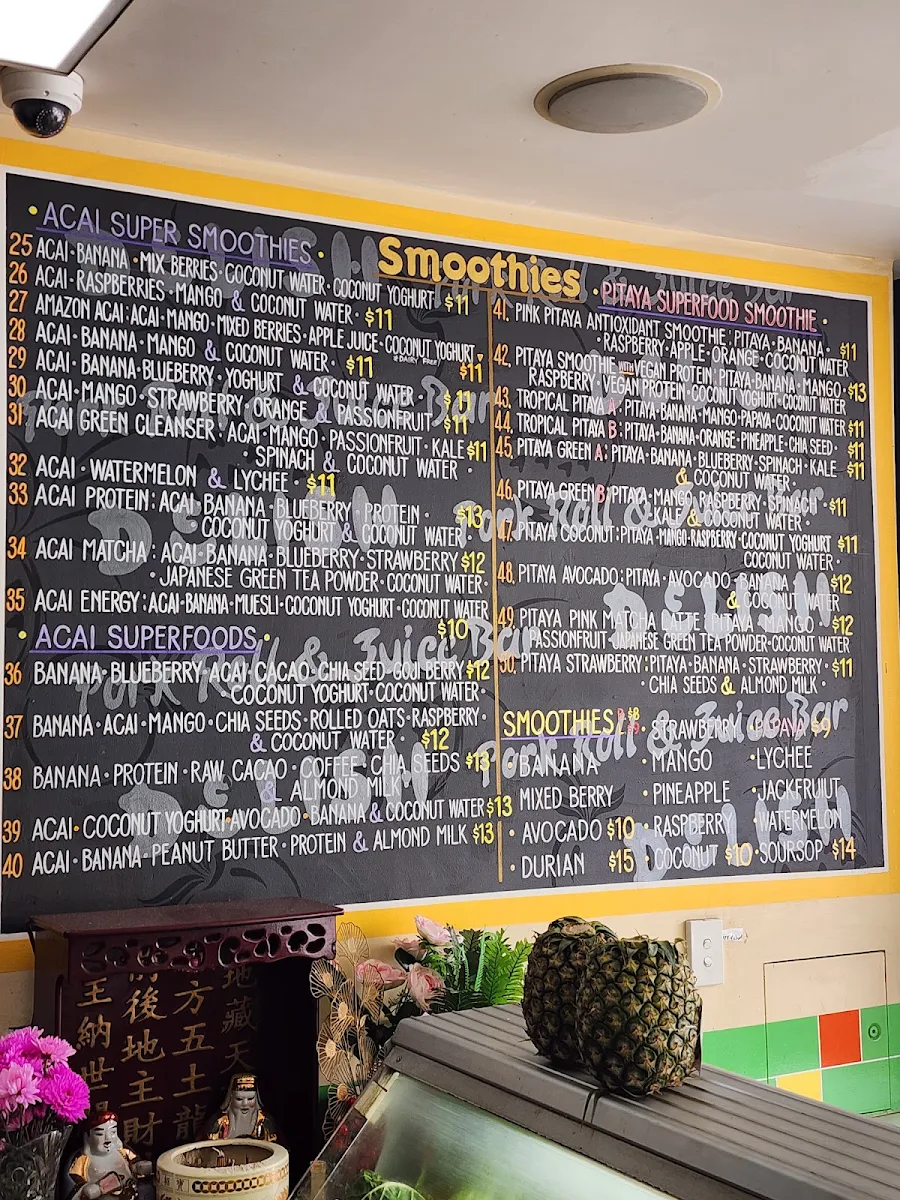 Smoothies
• ACAI SUPER SMOOTHIES •
25 ACAI • BANANA • MIX BERRIES • COCONUT WATER • COCONUT YOGHURT $11
26 ACAI • RASPBERRIES • MANGO & COCONUT WATER • $11
27 AMAZON ACAI: ACAI • MANGO • MIXED BERRIES • APPLE JUICE • COCONUT YOGHURT •
DAIRY FREE
$11
28 ACAI • BANANA • MANGO & COCONUT WATER • $11
29 ACAI • BANANA • BLUEBERRY • YOGHURT & COCONUT WATER • $11
30 ACAI • MANGO • STRAWBERRY • ORANGE & PASSIONFRUIT • $11
31 ACAI GREEN CLEANSER : ACAI • MANGO • PASSIONFRUIT • KALE $11
• SPINACH & COCONUT WATER •
32 ACAI • WATERMELON & LYCHEE • $11
33 ACAI PROTEIN : ACAI • BANANA • BLUEBERRY • PROTEIN • $13
COCONUT YOGHURT & COCONUT WATER •
34 ACAI MATCHA : ACAI • BANANA • BLUEBERRY • STRAWBERRY $12
• JAPANESE GREEN TEA POWDER • COCONUT WATER •
35 ACAI ENERGY : ACAI • BANANA • MUESLI • COCONUT YOGHURT • COCONUT WATER
$10
• ACAI SUPERFOODS •
36 BANANA • BLUEBERRY • ACAI • CACAO • CHIA SEED • GOJI BERRY • $12
COCONUT YOGHURT • COCONUT WATER •
37 BANANA • ACAI • MANGO • CHIA SEEDS • ROLLED OATS • RASPBERRY •
& COCONUT WATER • $12
38 BANANA • PROTEIN • RAW CACAO • COFFEE • CHIA SEEDS $13
& ALMOND MILK •
39 ACAI • COCONUT YOGHURT • AVOCADO • BANANA & COCONUT WATER $13
40 ACAI • BANANA • PEANUT BUTTER • PROTEIN & ALMOND MILK $13
• PITAYA SUPERFOOD SMOOTHIE •
41. PINK PITAYA ANTIOXIDANT SMOOTHIE : PITAYA • BANANA •
• RASPBERRY • APPLE • ORANGE • COCONUT WATER $11
42. PITAYA SMOOTHIE WITH VEGAN PROTEIN : PITAYA • BANANA • MANGO • $13
RASPBERRY • VEGAN PROTEIN • COCONUT YOGHURT • COCONUT WATER
43. TROPICAL PITAYA A : PITAYA • BANANA • MANGO • PAPAYA • COCONUT WATER $11
44. TROPICAL PITAYA B : PITAYA • BANANA • ORANGE • PINEAPPLE • CHIA SEED • $11
45. PITAYA GREEN A : PITAYA • BANANA • BLUEBERRY • SPINACH • KALE $11
& COCONUT WATER •
46. PITAYA GREEN B : PITAYA • MANGO • RASPBERRY • SPINACH $11
• KALE & COCONUT WATER •
47. PITAYA COCONUT : PITAYA • MANGO • RASPBERRY • COCONUT YOGHURT $11
COCONUT WATER •
48. PITAYA AVOCADO : PITAYA • AVOCADO • BANANA $12
& COCONUT WATER
49. PITAYA PINK MATCHA LATTE : PITAYA • MANGO • $12
PASSIONFRUIT • JAPANESE GREEN TEA POWDER • COCONUT WATER
50. PITAYA STRAWBERRY : PITAYA • BANANA • STRAWBERRY • $11
• CHIA SEEDS & ALMOND MILK •
SMOOTHIES $8 • STRAWBERRY • PAPAYA $9
• BANANA • MANGO • LYCHEE
MIXED BERRY • PINEAPPLE • JACKFRUIT
• AVOCADO $10 • RASPBERRY • WATERMELON
• DURIAN $15 • COCONUT $10 • SOURSOP $14
DELISH
Pork Roll & Juice Bar
地藏天
方五土龍
前後地主財
主納世